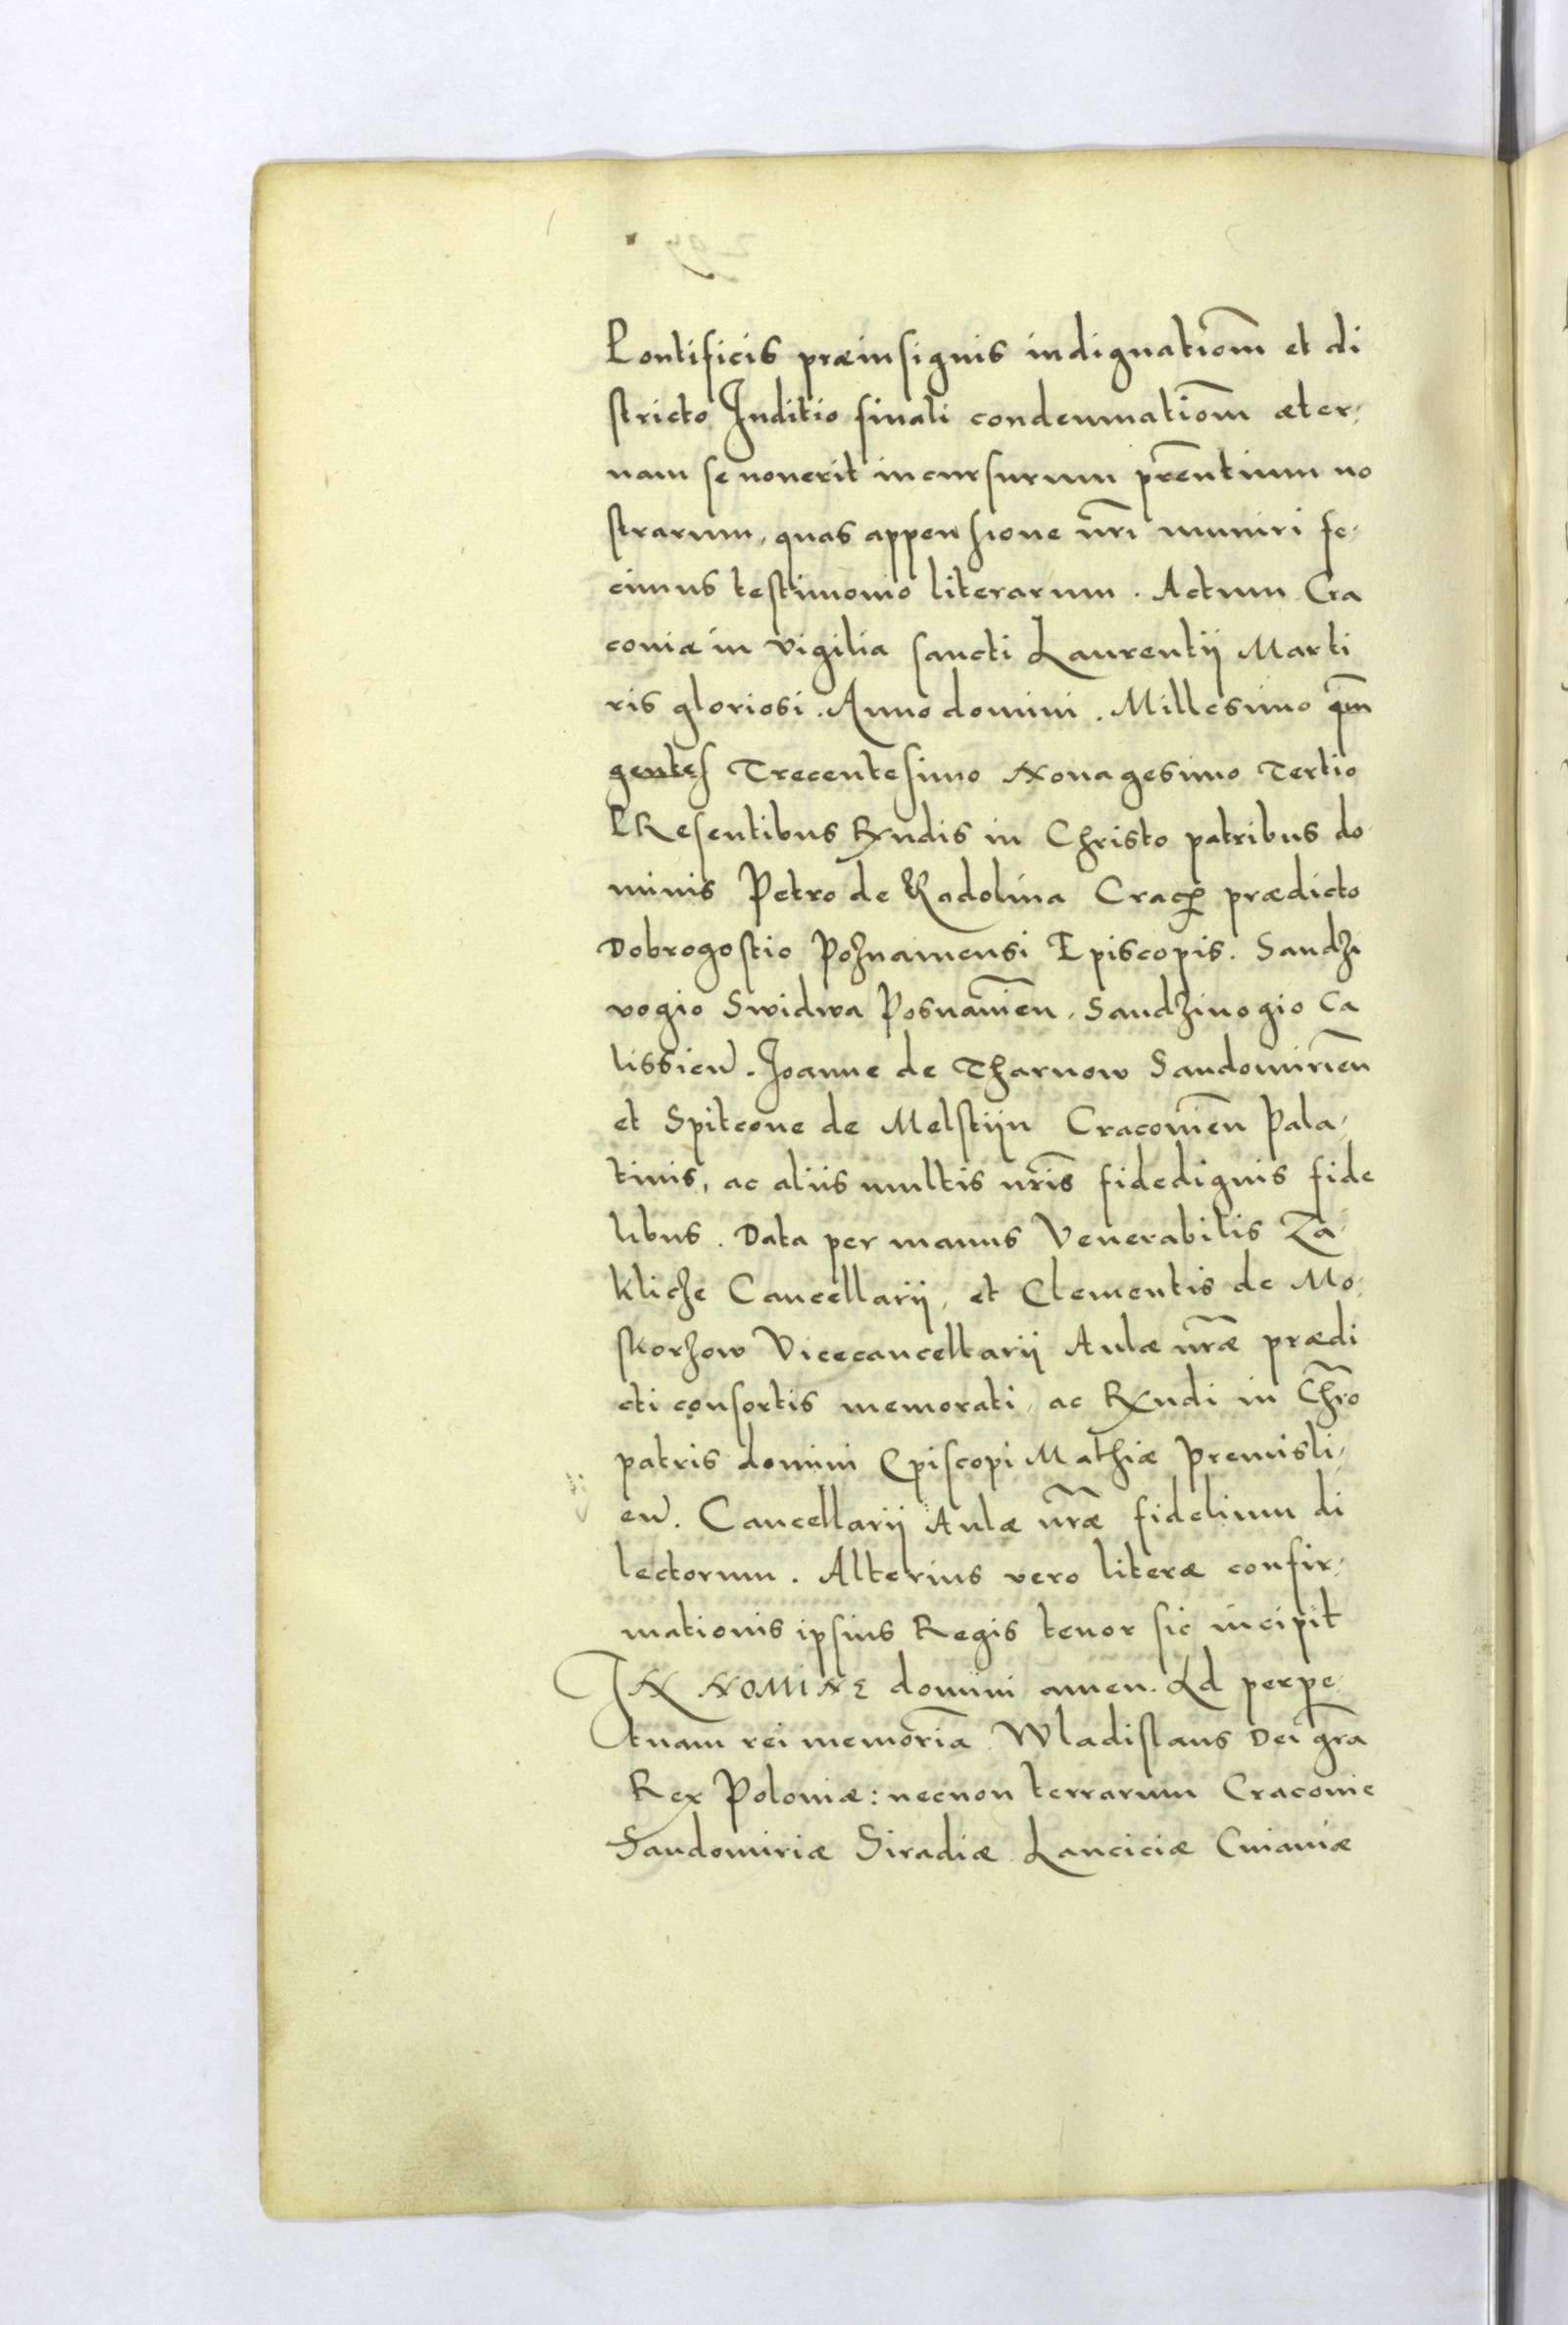 Pontificis præinsignis indignatiōm et di
stricto Iuditio finali condemnatiōm æter,
nam se noverit incursurum prēntium no
strarum, quas appensione nr̄i muniri fe,
cimus testimonio literarum. Actum Cra
coviæ in vigilia sancti Laurentij Marti
ris gloriosi. Anno domini. Millesimo qm̄
gentes Trecentesimo Nonagesimo Tertio
PResentibus Rndis in Christo patribus do
minis Petro de Radolina Cracoꝫ prædicto
Dobrogostio Poznamensi Episcopis. Sandzi
vogio Swidwa Posnamēn, Sandzivogio Ca
lissien̄. Joanne de Tharnow Sandomiriēn
et Spitcone de Melstijn Cracoviēn Pala,
tinis, ac aliis multis nr̄is fidedignis fide
libus. Data per manus Venerabilis Za,
kliche Cancellarij, et Clementis de Mo,
skorzow Vicecancellarij Aulæ nr̄æ prædi
cti consortis memorati, ac Rndi in Chr̄o
patris domini Episcopi Mathiæ Premisli,
en̄. Cancellarij Aulæ nr̄æ fidelium di
lectorum. Alterius vero literæ confir,
mationis ipsius Regis tenor sic incipit
IN NOMINE domini amen. Ad perpe,
tuam rei memoriā Wladislaus Dei gr̄a
Rex Poloniæ: necnon terrarum Cracovie
Sandomiriæ Siradiæ Lanciciæ Cuiaviæ